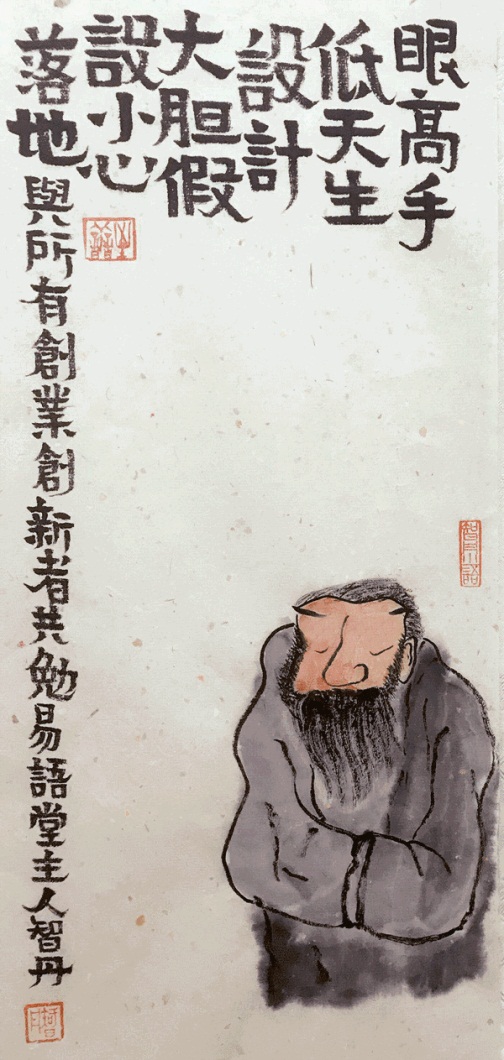 眼高手
低天生
設計
大胆假
設小心
落地與所有創業創新者共勉易語堂主人智丹